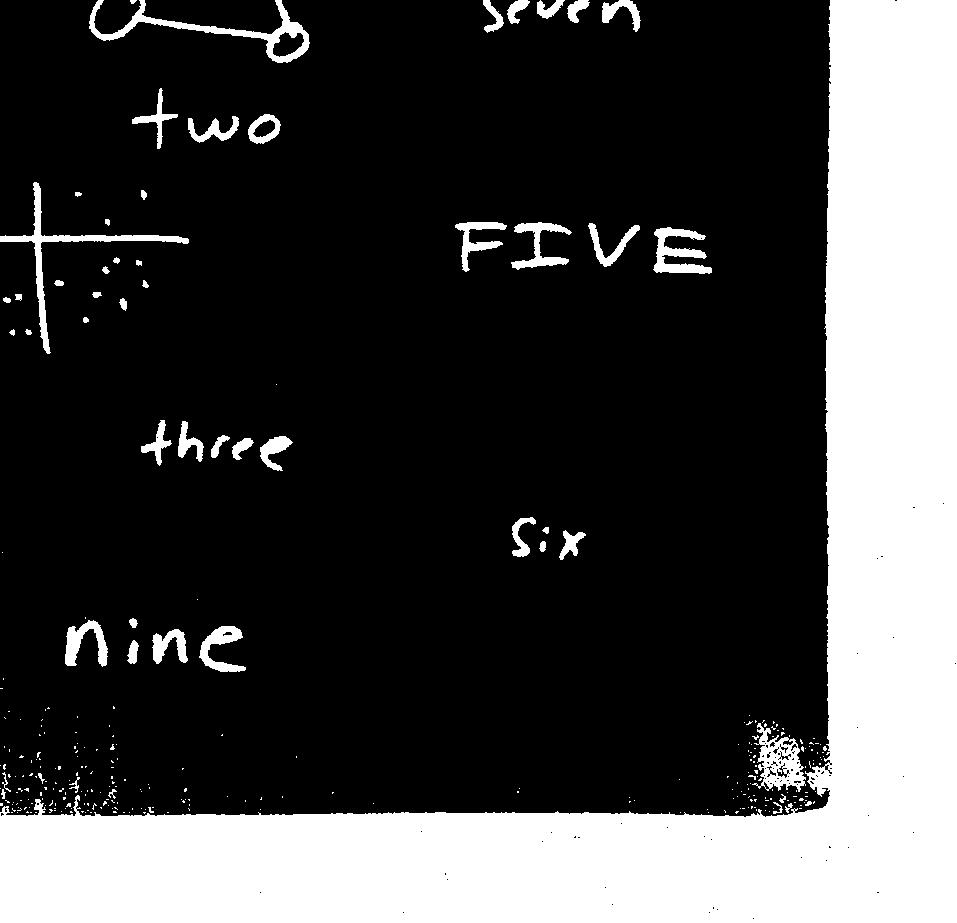 seven
two
FIVE
three
six
nine